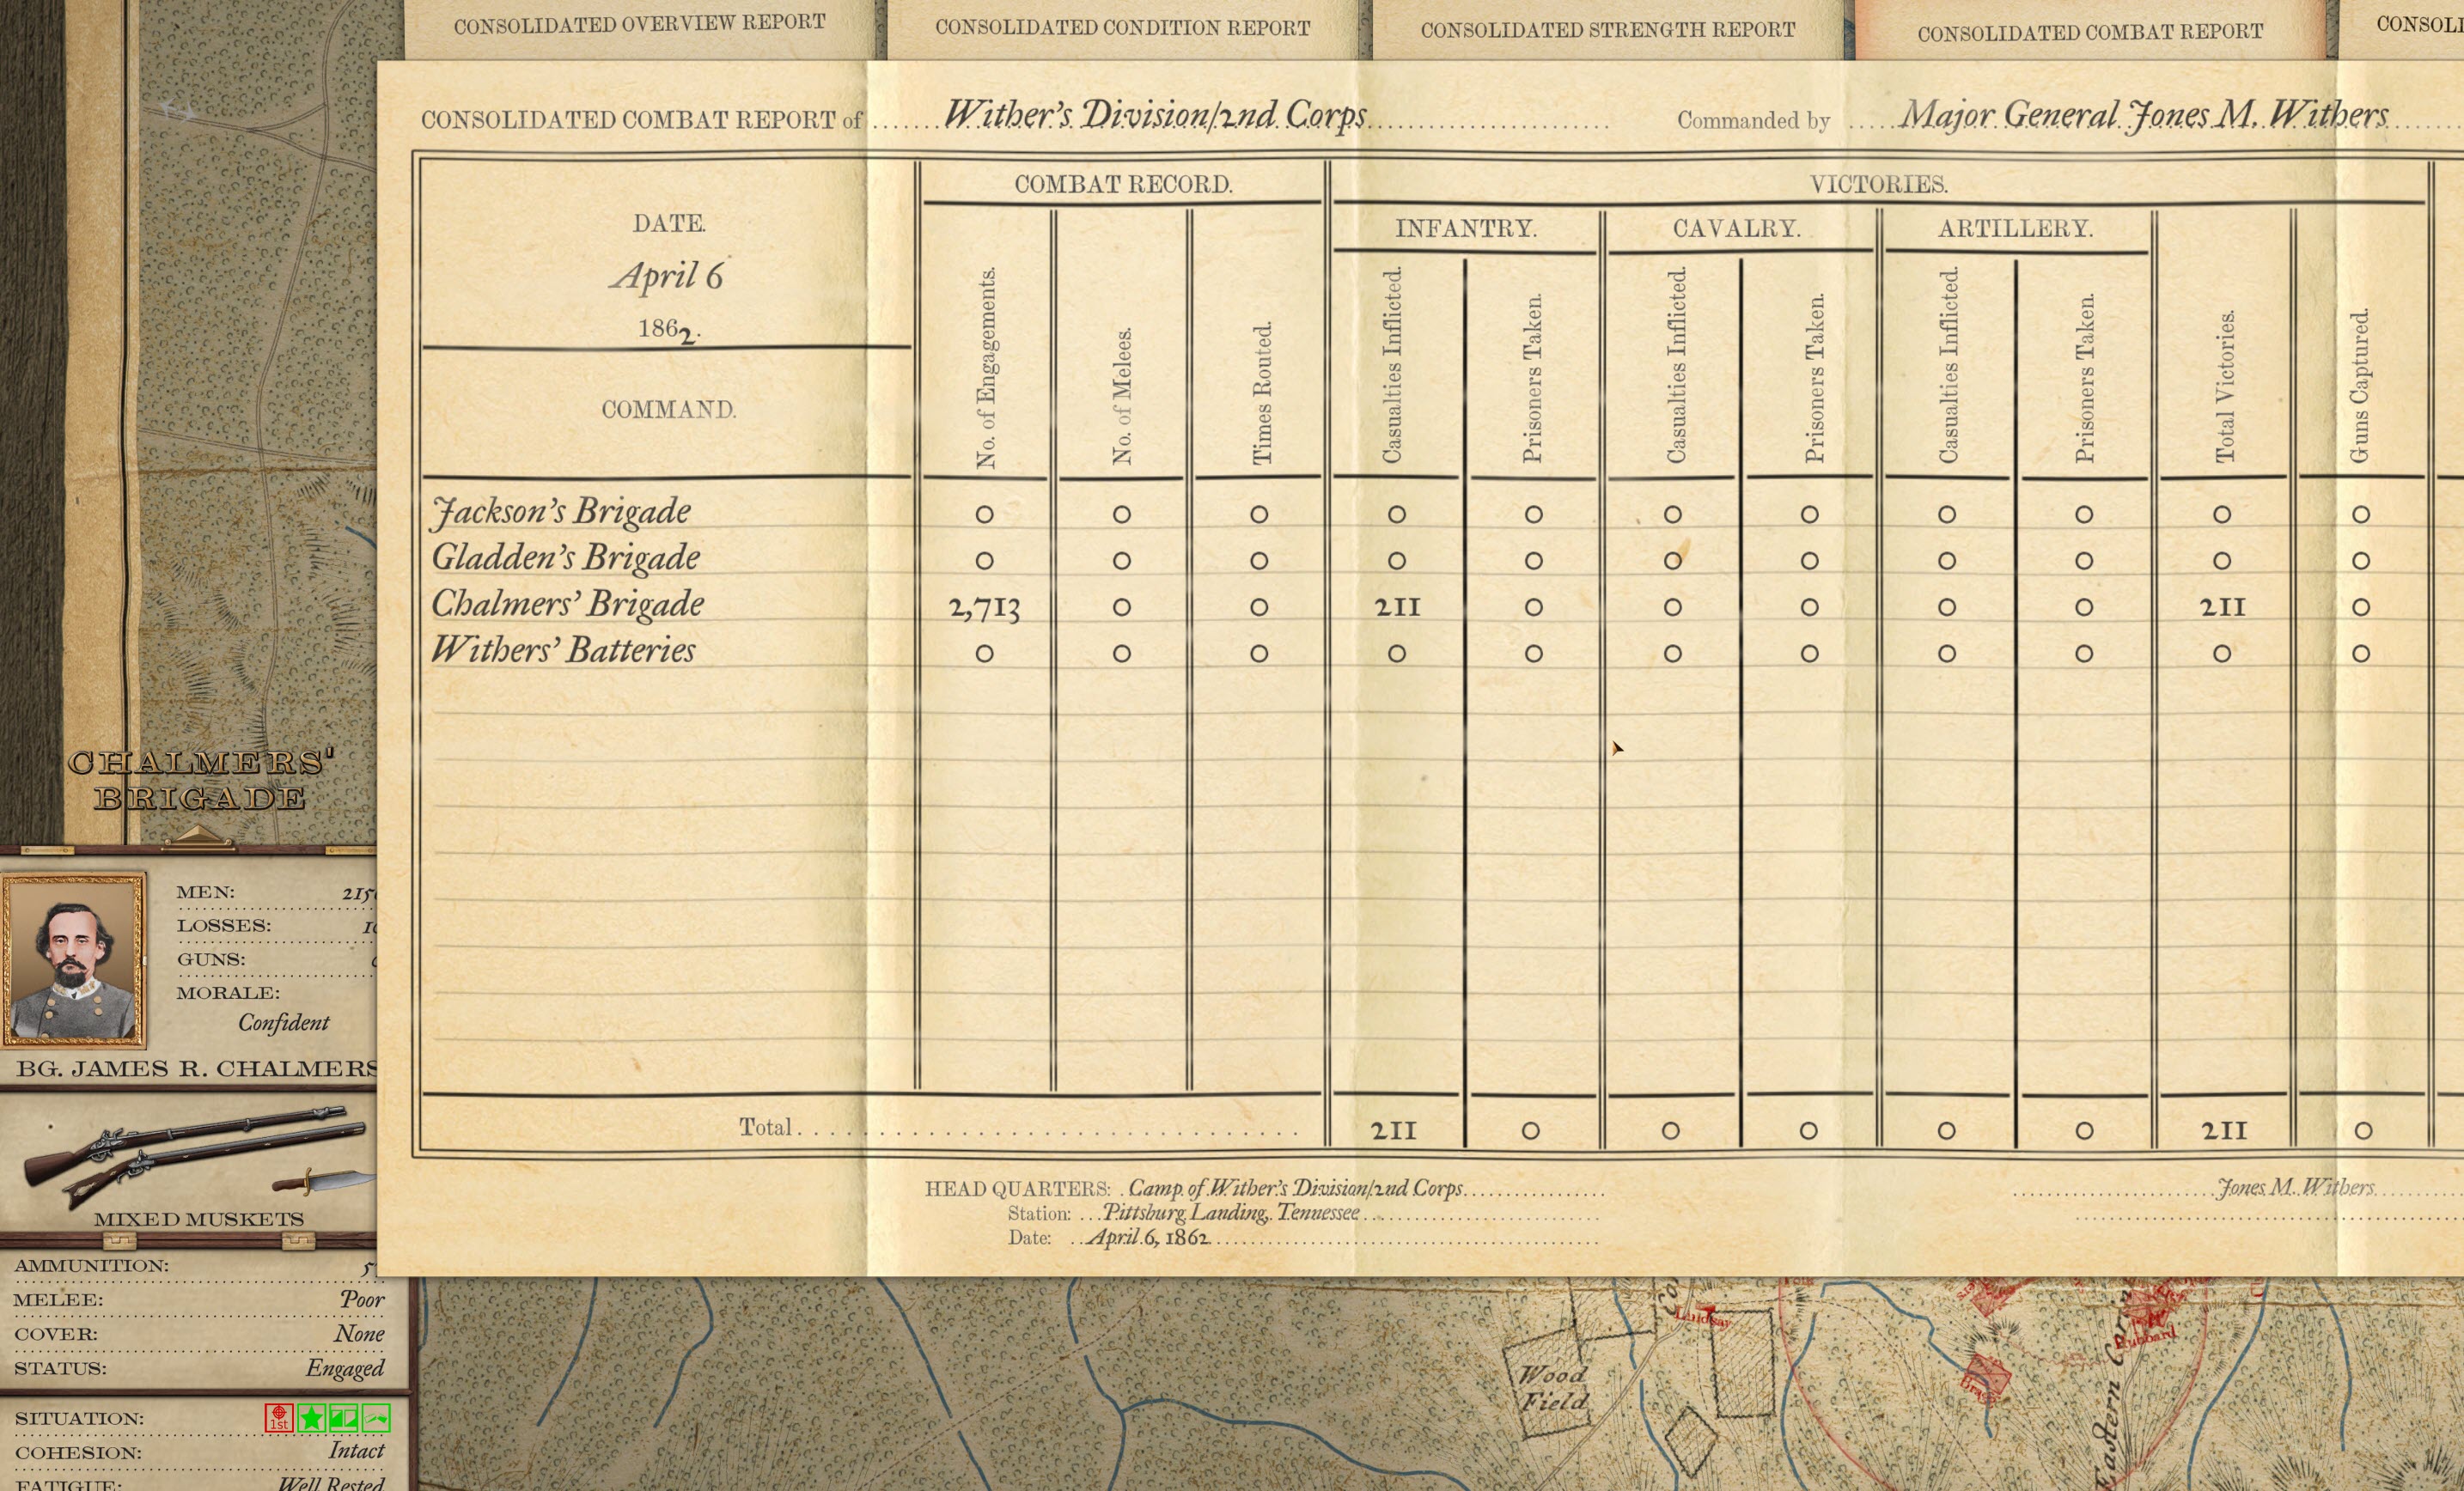 CONSOLIDATED OVERVIEW REPORT
CONSOLIDATED CONDITION REPORT
CONSOLIDATED STRENGTH REPORT
CONSOLIDATED COMBAT REPORT
CONSOLIDATED COMBAT REPORT of Wither's Division/2nd Corps Commanded by Major General Jones M. Withers
DATE.
April 6
1862.
COMMAND.
COMBAT RECORD.
VICTORIES.
INFANTRY.
CAVALRY.
ARTILLERY.
No. of Engagements.
No. of Melees.
Times Routed.
Casualties Inflicted.
Prisoners Taken.
Casualties Inflicted.
Prisoners Taken.
Casualties Inflicted.
Prisoners Taken.
Total Victories.
Guns Captured.
Jackson's Brigade 0 0 0 0 0 0 0 0 0 0 0
Gladden's Brigade 0 0 0 0 0 0 0 0 0 0 0
Chalmers' Brigade 2,713 0 0 211 0 0 0 0 0 211 0
Withers' Batteries 0 0 0 0 0 0 0 0 0 0 0
Total 211 0 0 0 0 0 211 0
HEAD QUARTERS: Camp of Wither's Division/2nd Corps
Station: Pittsburg Landing, Tennessee
Date: April 6, 1862
Jones M. Withers
CHALMERS'
BRIGADE
MEN:
LOSSES:
GUNS:
MORALE:
Confident
BG. JAMES R. CHALMERS
MIXED MUSKETS
AMMUNITION:
MELEE: Poor
COVER: None
STATUS: Engaged
SITUATION: 1st
COHESION: Intact
FATIGUE: Well Rested
Wood
Field
Lindsay
Hubbard
Eastern